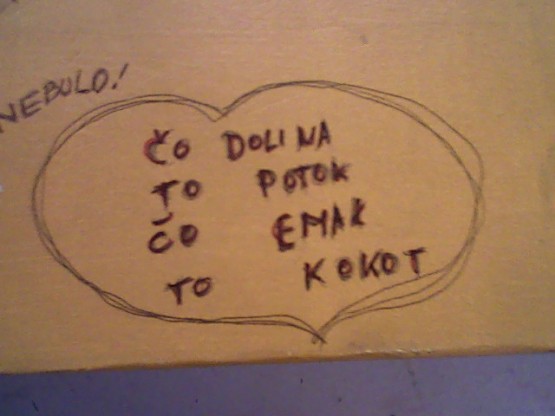 NEBULO!
ČO DOLINA
TO POTOK
ČO EMAK
TO KOKOT